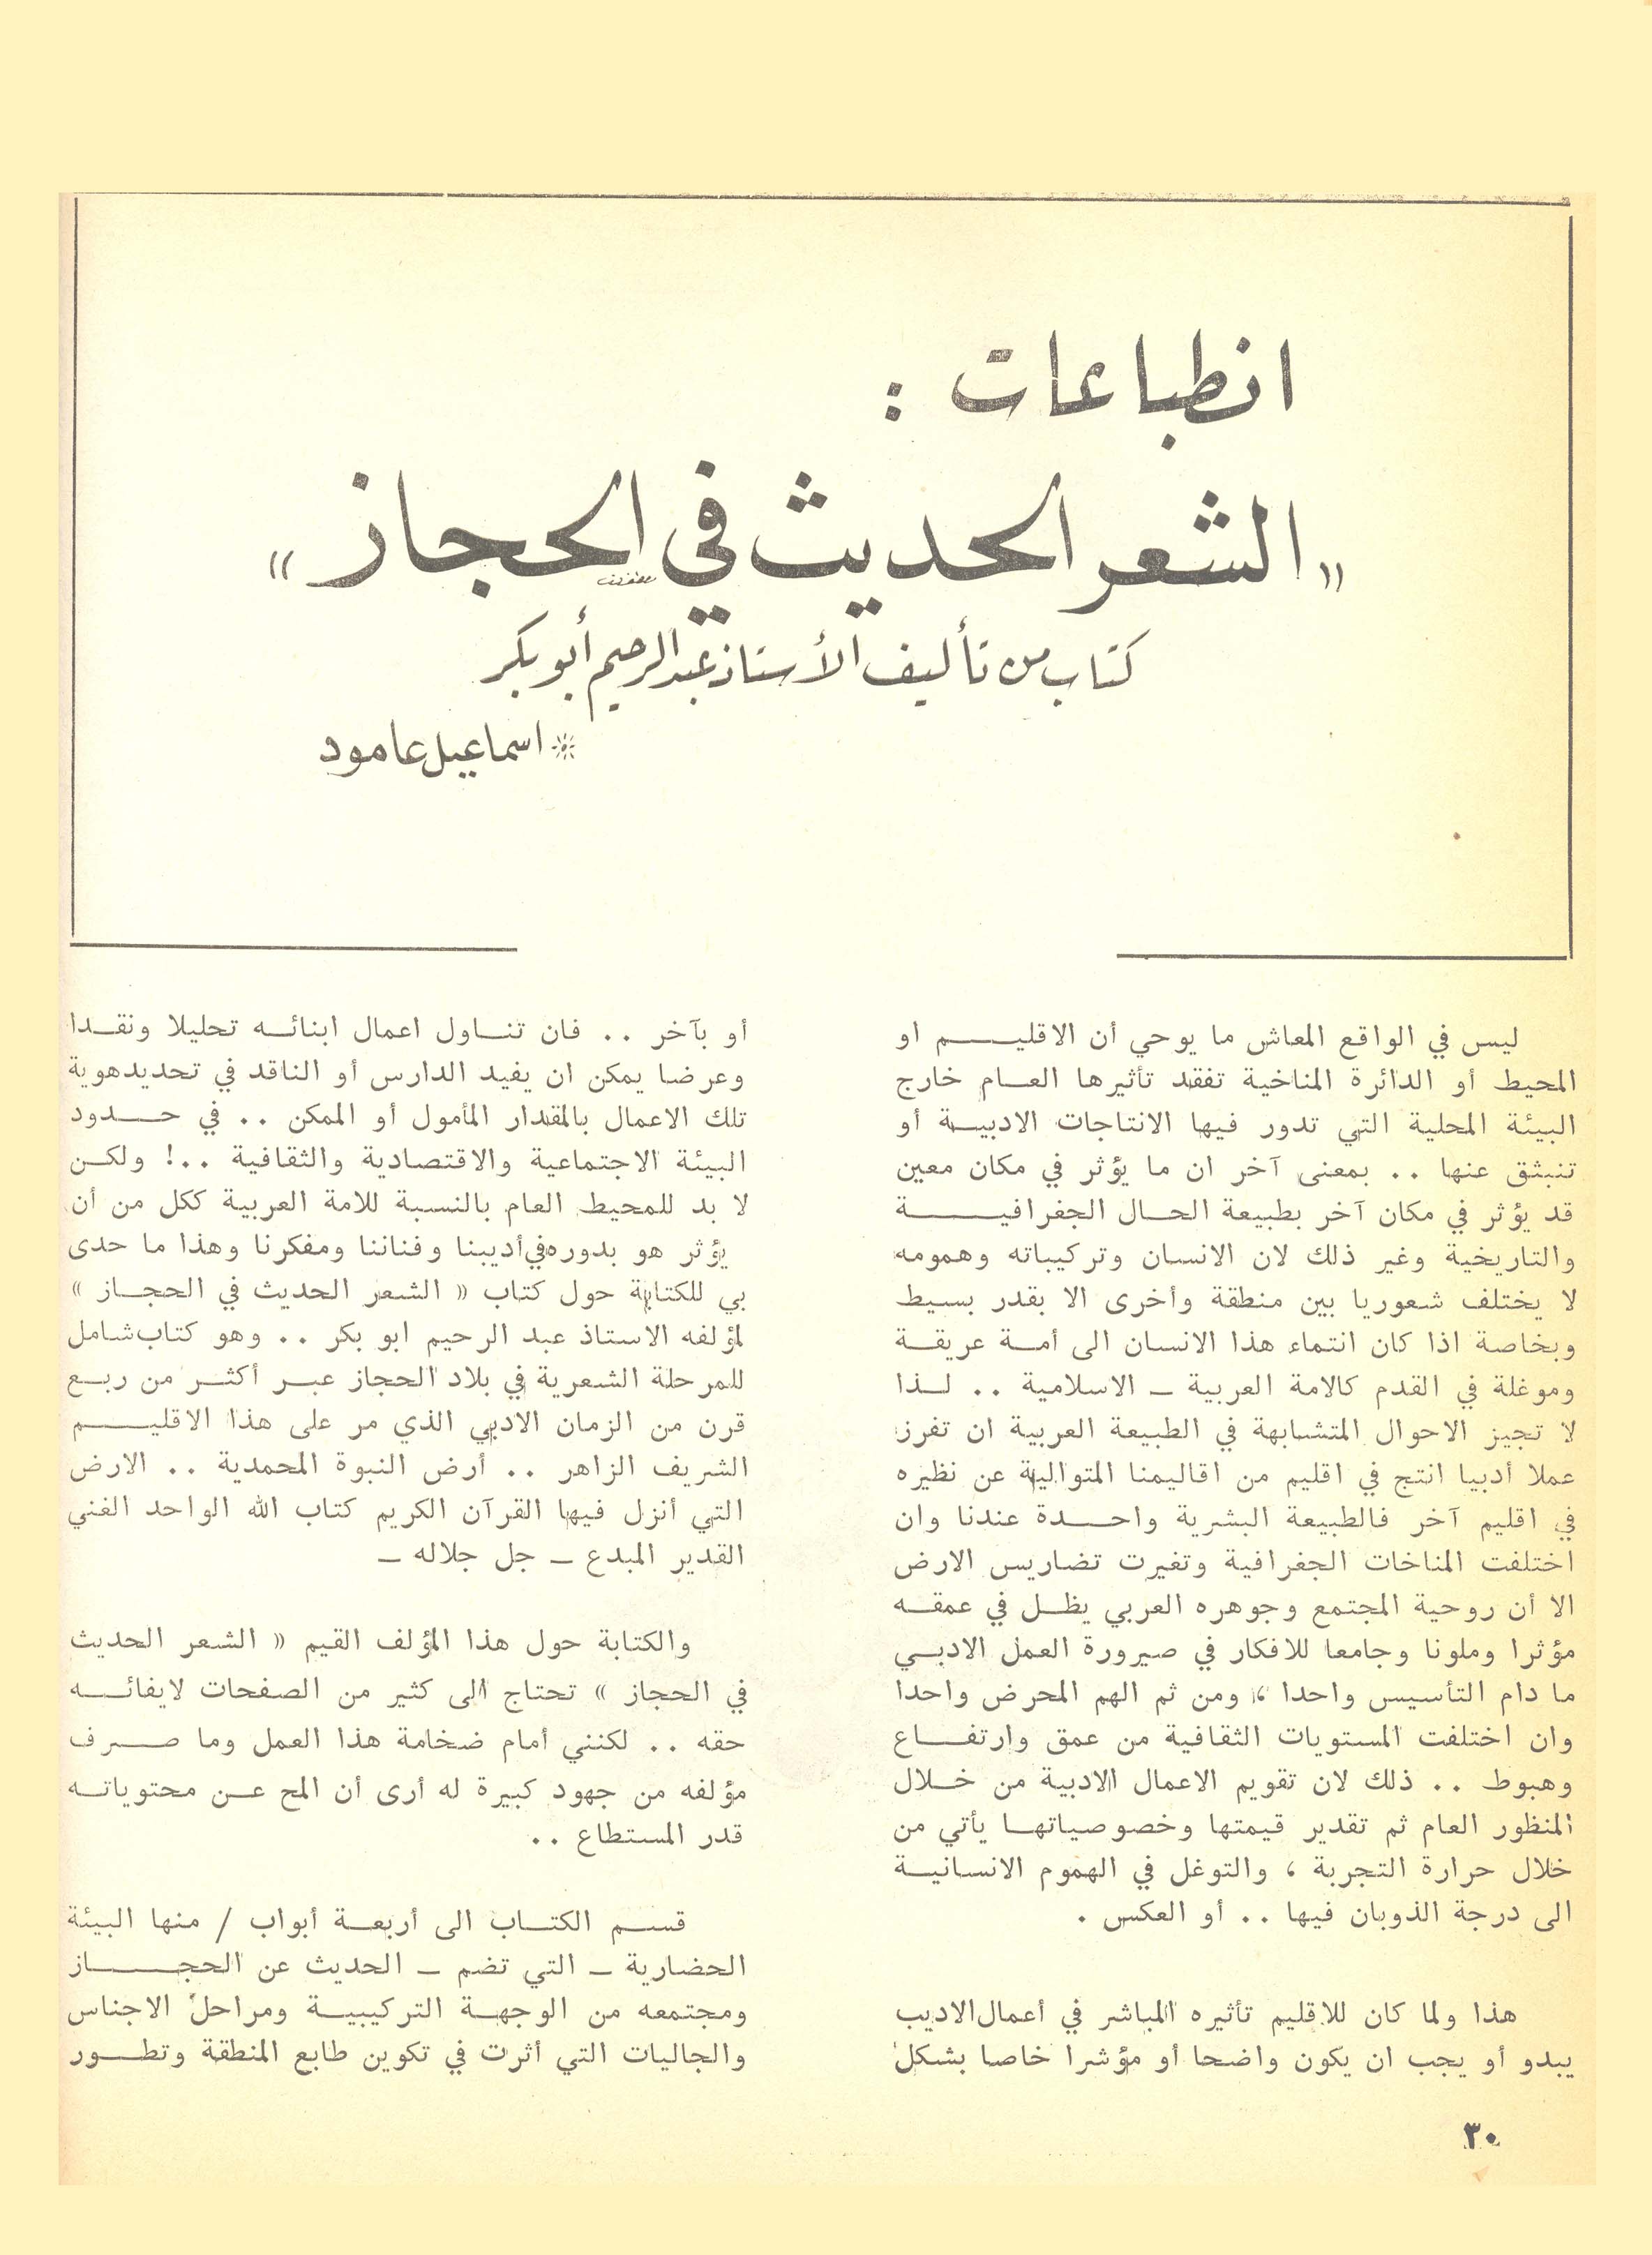 انطباعات :
« الشعر الحديث في الحجاز »
كتاب من تأليف الأستاذ عبد الرحيم أبو بكر
* اسماعيل عامود
ليس في الواقع المعاش ما يوحي أن الاقليم او
المحيط أو الدائرة المناخية تفقد تأثيرها العام خارج
البيئة المحلية التي تدور فيها الانتاجات الادبية أو
تنبثق عنها .. بمعنى آخر ان ما يؤثر في مكان معين
قد يؤثر في مكان آخر بطبيعة الحال الجغرافية
والتاريخية وغير ذلك لان الانسان وتركيباته وهمومه
لا يختلف شعوريا بين منطقة وأخرى الا بقدر بسيط
وبخاصة اذا كان انتماء هذا الانسان الى أمة عريقة
وموغلة في القدم كالامة العربية ـ الاسلامية .. لذا
لا تجيز الاحوال المتشابهة في الطبيعة العربية ان تفرز
عملا أدبيا انتج في اقليم من اقاليمنا المتوالية عن نظيره
في اقليم آخر فالطبيعة البشرية واحدة عندنا وان
اختلفت المناخات الجغرافية وتغيرت تضاريس الارض
الا أن روحية المجتمع وجوهره العربي يظل في عمقه
مؤثرا وملونا وجامعا للافكار في صيرورة العمل الادبي
ما دام التأسيس واحدا ، ومن ثم الهم المحرض واحدا
وان اختلفت المستويات الثقافية من عمق وارتفاع
وهبوط .. ذلك لان تقويم الاعمال الادبية من خلال
المنظور العام ثم تقدير قيمتها وخصوصياتها يأتي من
خلال حرارة التجربة ، والتوغل في الهموم الانسانية
الى درجة الذوبان فيها .. أو العكس .
هذا ولما كان للاقليم تأثيره المباشر في أعمال الاديب
يبدو أو يجب ان يكون واضحا أو مؤشرا خاصا بشكل
أو بآخر .. فان تناول اعمال ابنائه تحليلا ونقدا
وعرضا يمكن ان يفيد الدارس أو الناقد في تحديد هوية
تلك الاعمال بالمقدار المأمول أو الممكن .. في حدود
البيئة الاجتماعية والاقتصادية والثقافية ..! ولكن
لا بد للمحيط العام بالنسبة للامة العربية ككل من أن
يؤثر هو بدوره في أديبنا وفناننا ومفكرنا وهذا ما حدى
بي للكتابة حول كتاب « الشعر الحديث في الحجاز »
لمؤلفه الاستاذ عبد الرحيم ابو بكر .. وهو كتاب شامل
للمرحلة الشعرية في بلاد الحجاز عبر أكثر من ربع
قرن من الزمان الادبي الذي مر على هذا الاقليم
الشريف الزاهر .. أرض النبوة المحمدية .. الارض
التي أنزل فيها القرآن الكريم كتاب الله الواحد الغني
القدير المبدع ـ جل جلاله ـ
والكتابة حول هذا المؤلف القيم « الشعر الحديث
في الحجاز » تحتاج الى كثير من الصفحات لايفائه
حقه .. لكنني أمام ضخامة هذا العمل وما صرف
مؤلفه من جهود كبيرة له أرى أن المح عن محتوياته
قدر المستطاع ..
قسم الكتاب الى أربعة أبواب / منها البيئة
الحضارية ـ التي تضم ـ الحديث عن الحجاز
ومجتمعه من الوجهة التركيبية ومراحل الاجناس
والجاليات التي أثرت في تكوين طابع المنطقة وتطور
٣٠